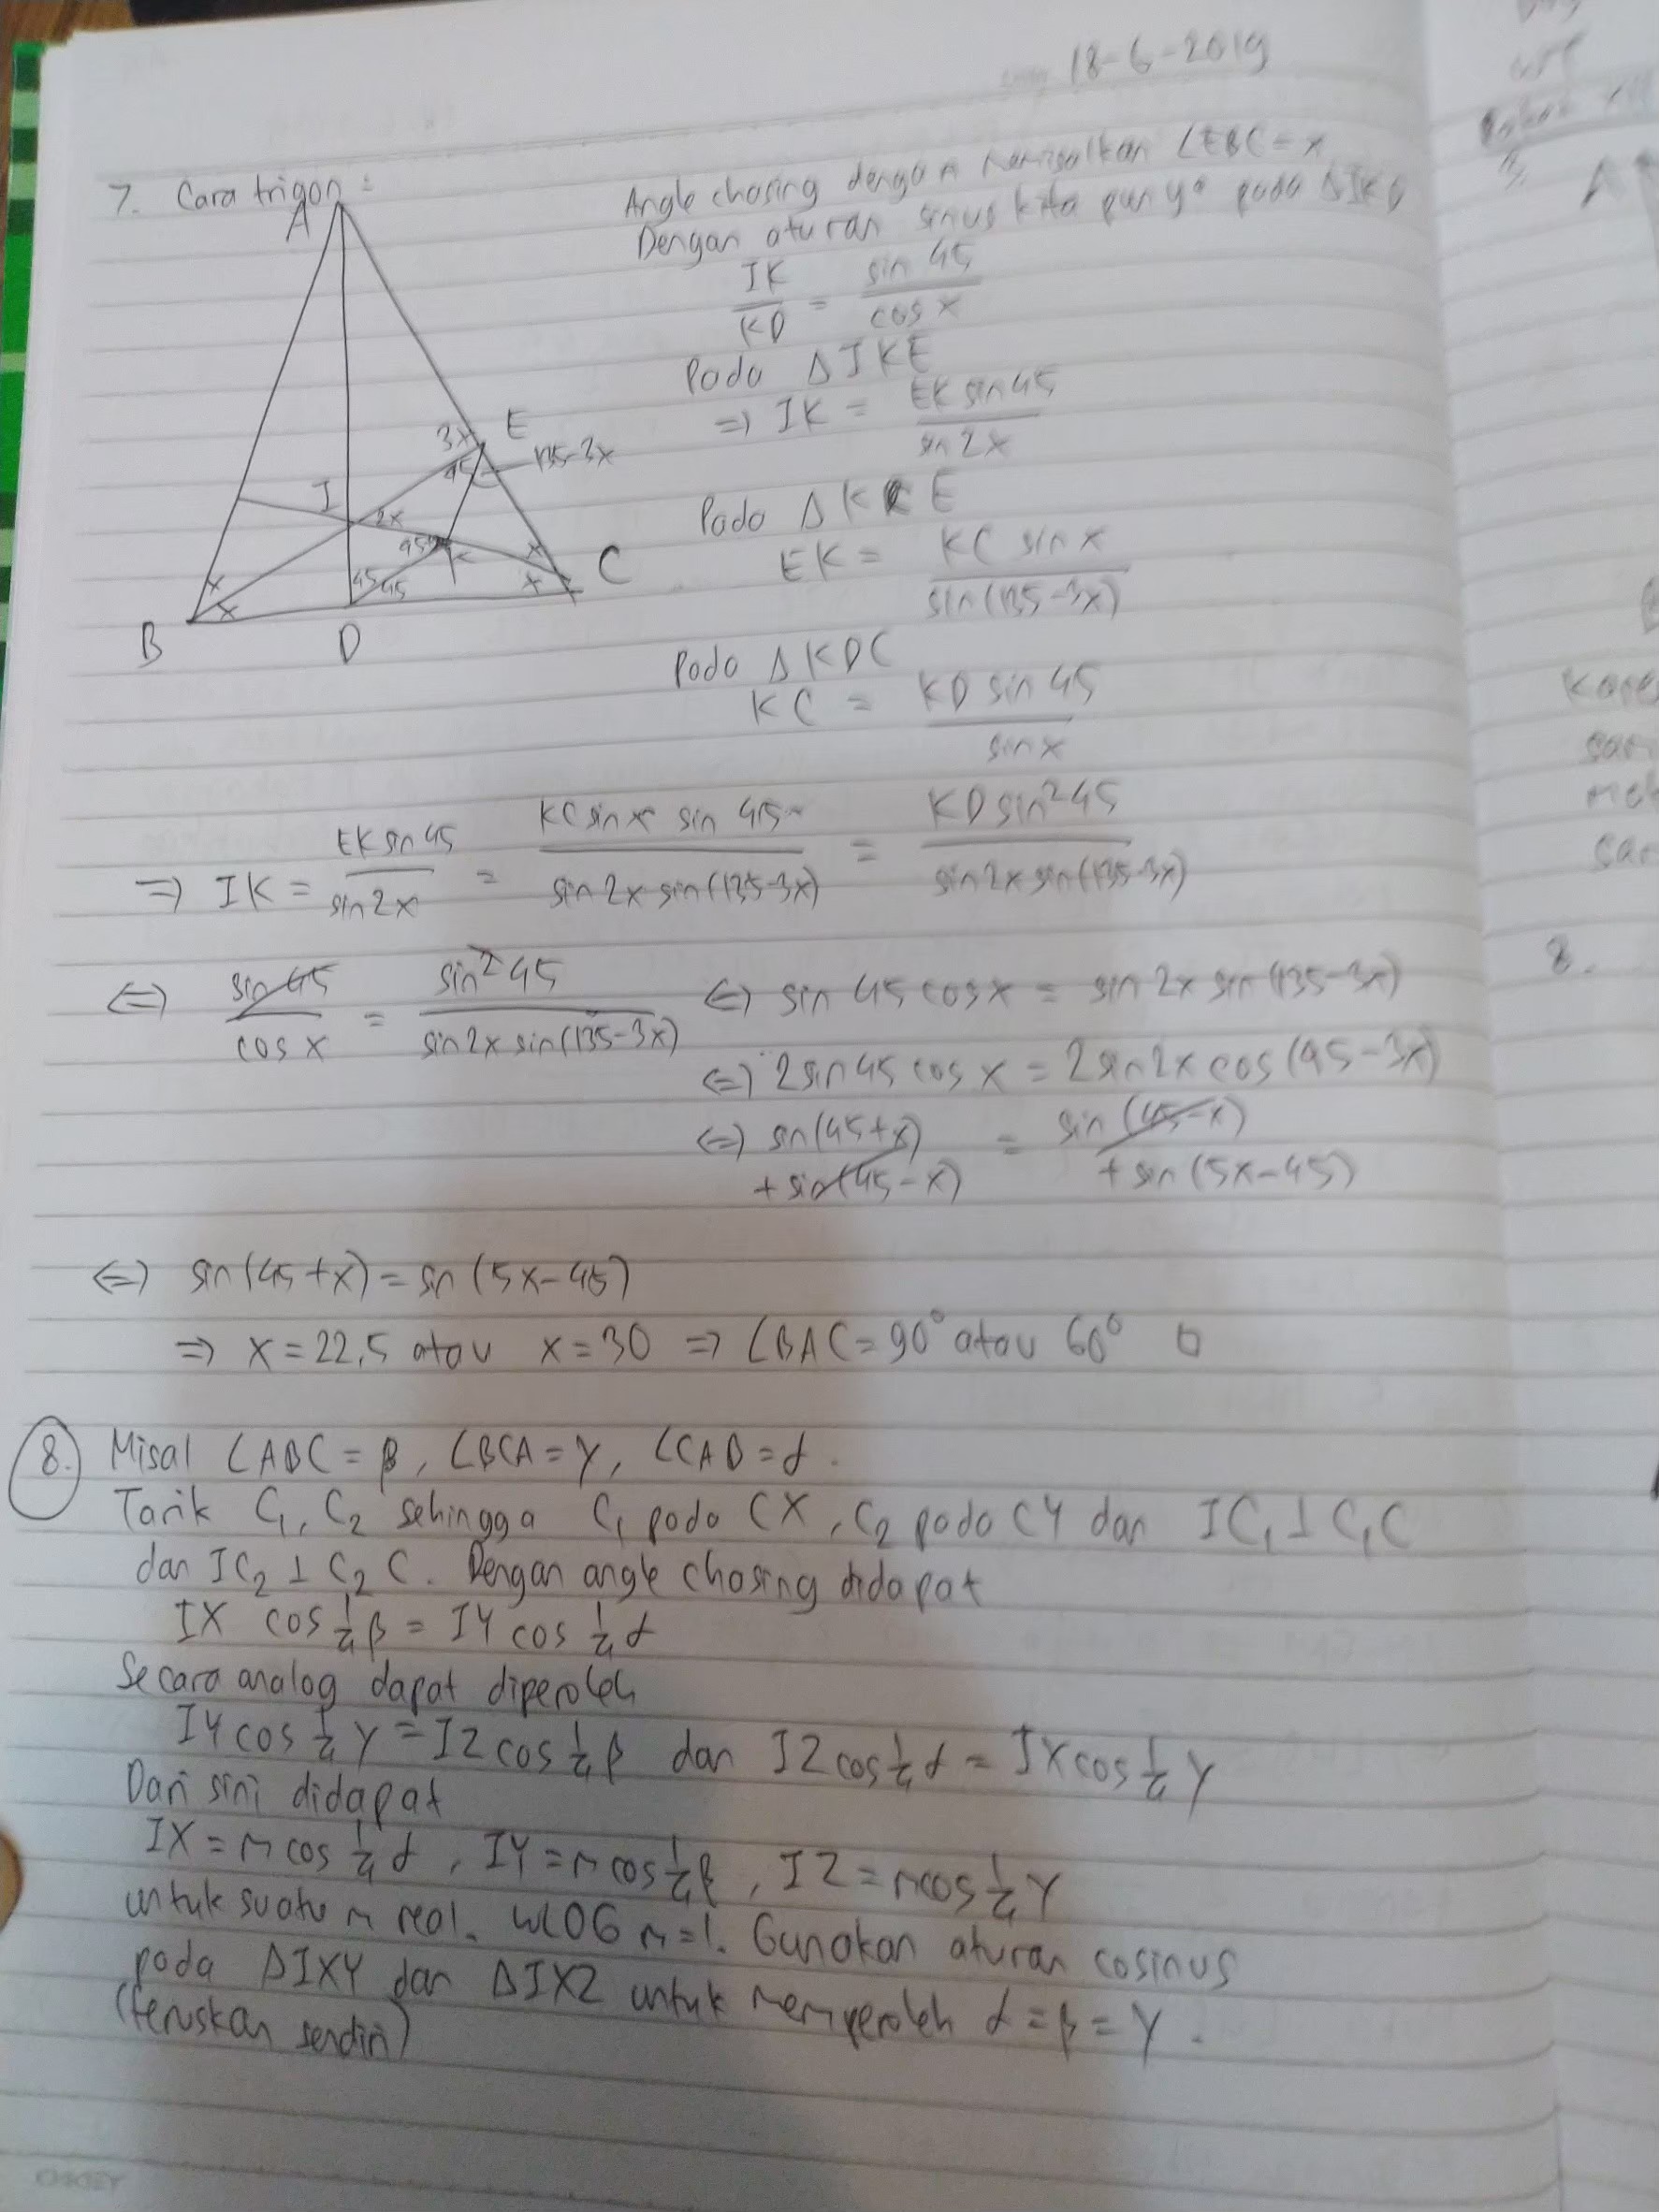 18-6-2019
7. Cara trigon:
Angle chasing dengan memisalkan ∠EBC = x
Dengan aturan sinus kita punya pada ΔIKD
IK/KD = sin 45/cos x
Pada ΔIKE
⇒ IK = EK sin 45/sin 2x
Pada ΔKCE
EK = KC sin x/sin(135-3x)
Pada ΔKDC
KC = KD sin 45/sin x
A
E
3x
45
135-3x
I
2x
45+x
K
x
x
C
45
45
x
x
B
D
⇒ IK = EK sin 45/sin 2x = KC sin x sin 45/sin 2x sin(135-3x) = KD sin² 45/sin 2x sin(135-3x)
⇔ sin 45/cos x = sin² 45/sin 2x sin(135-3x)
⇔ sin 45 cos x = sin 2x sin(135-3x)
⇔ 2 sin 45 cos x = 2 sin 2x cos(45-3x)
⇔ sin(45+x) + sin(45-x) = sin(45-x) + sin(5x-45)
⇔ sin(45+x) = sin(5x-45)
⇒ x = 22,5 atau x = 30 ⇒ ∠BAC = 90° atau 60° □
8. Misal ∠ABC = β, ∠BCA = γ, ∠CAB = α.
Tarik C₁, C₂ sehingga C₁ pada CX, C₂ pada CY dan IC₁ ⊥ C₁C
dan IC₂ ⊥ C₂C. Dengan angle chasing didapat
IX cos ¼β = IY cos ¼α
Secara analog dapat diperoleh
IY cos ¼γ = IZ cos ¼β dan IZ cos ¼α = IX cos ¼γ
Dari sini didapat
IX = m cos ¼α, IY = m cos ¼β, IZ = m cos ¼γ
untuk suatu m real. WLOG m=1. Gunakan aturan cosinus
pada ΔIXY dan ΔIXZ untuk memperoleh α = β = γ.
(Teruskan sendiri)
8.